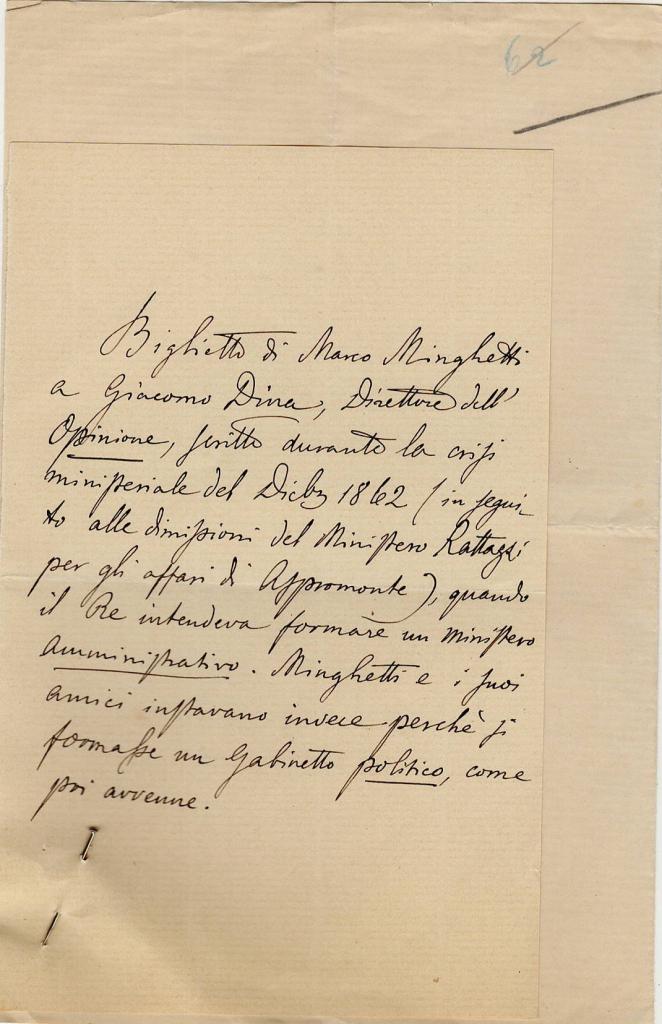 62
Biglietto di Marco Minghetti
a Giacomo Dina, Direttore dell'
Opinione, scritto durante la crisi
ministeriale del Dicbre 1862 (in segui-
to alle dimissioni del Ministero Rattazzi
per gli affari di Aspromonte), quando
il Re intendeva formare un ministero
amministrativo. Minghetti e i suoi
amici instavano invece perchè si
formasse un Gabinetto politico, come
poi avvenne.